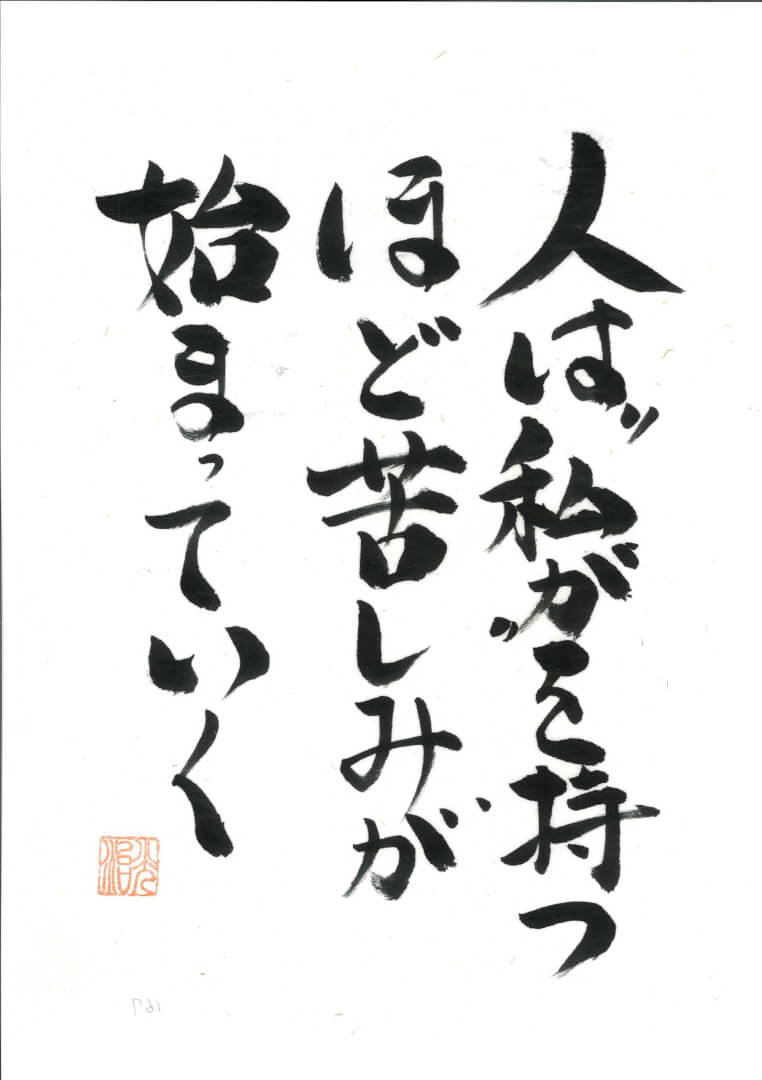 人は〃私が〃を持つ
ほど苦しみが
始まっていく